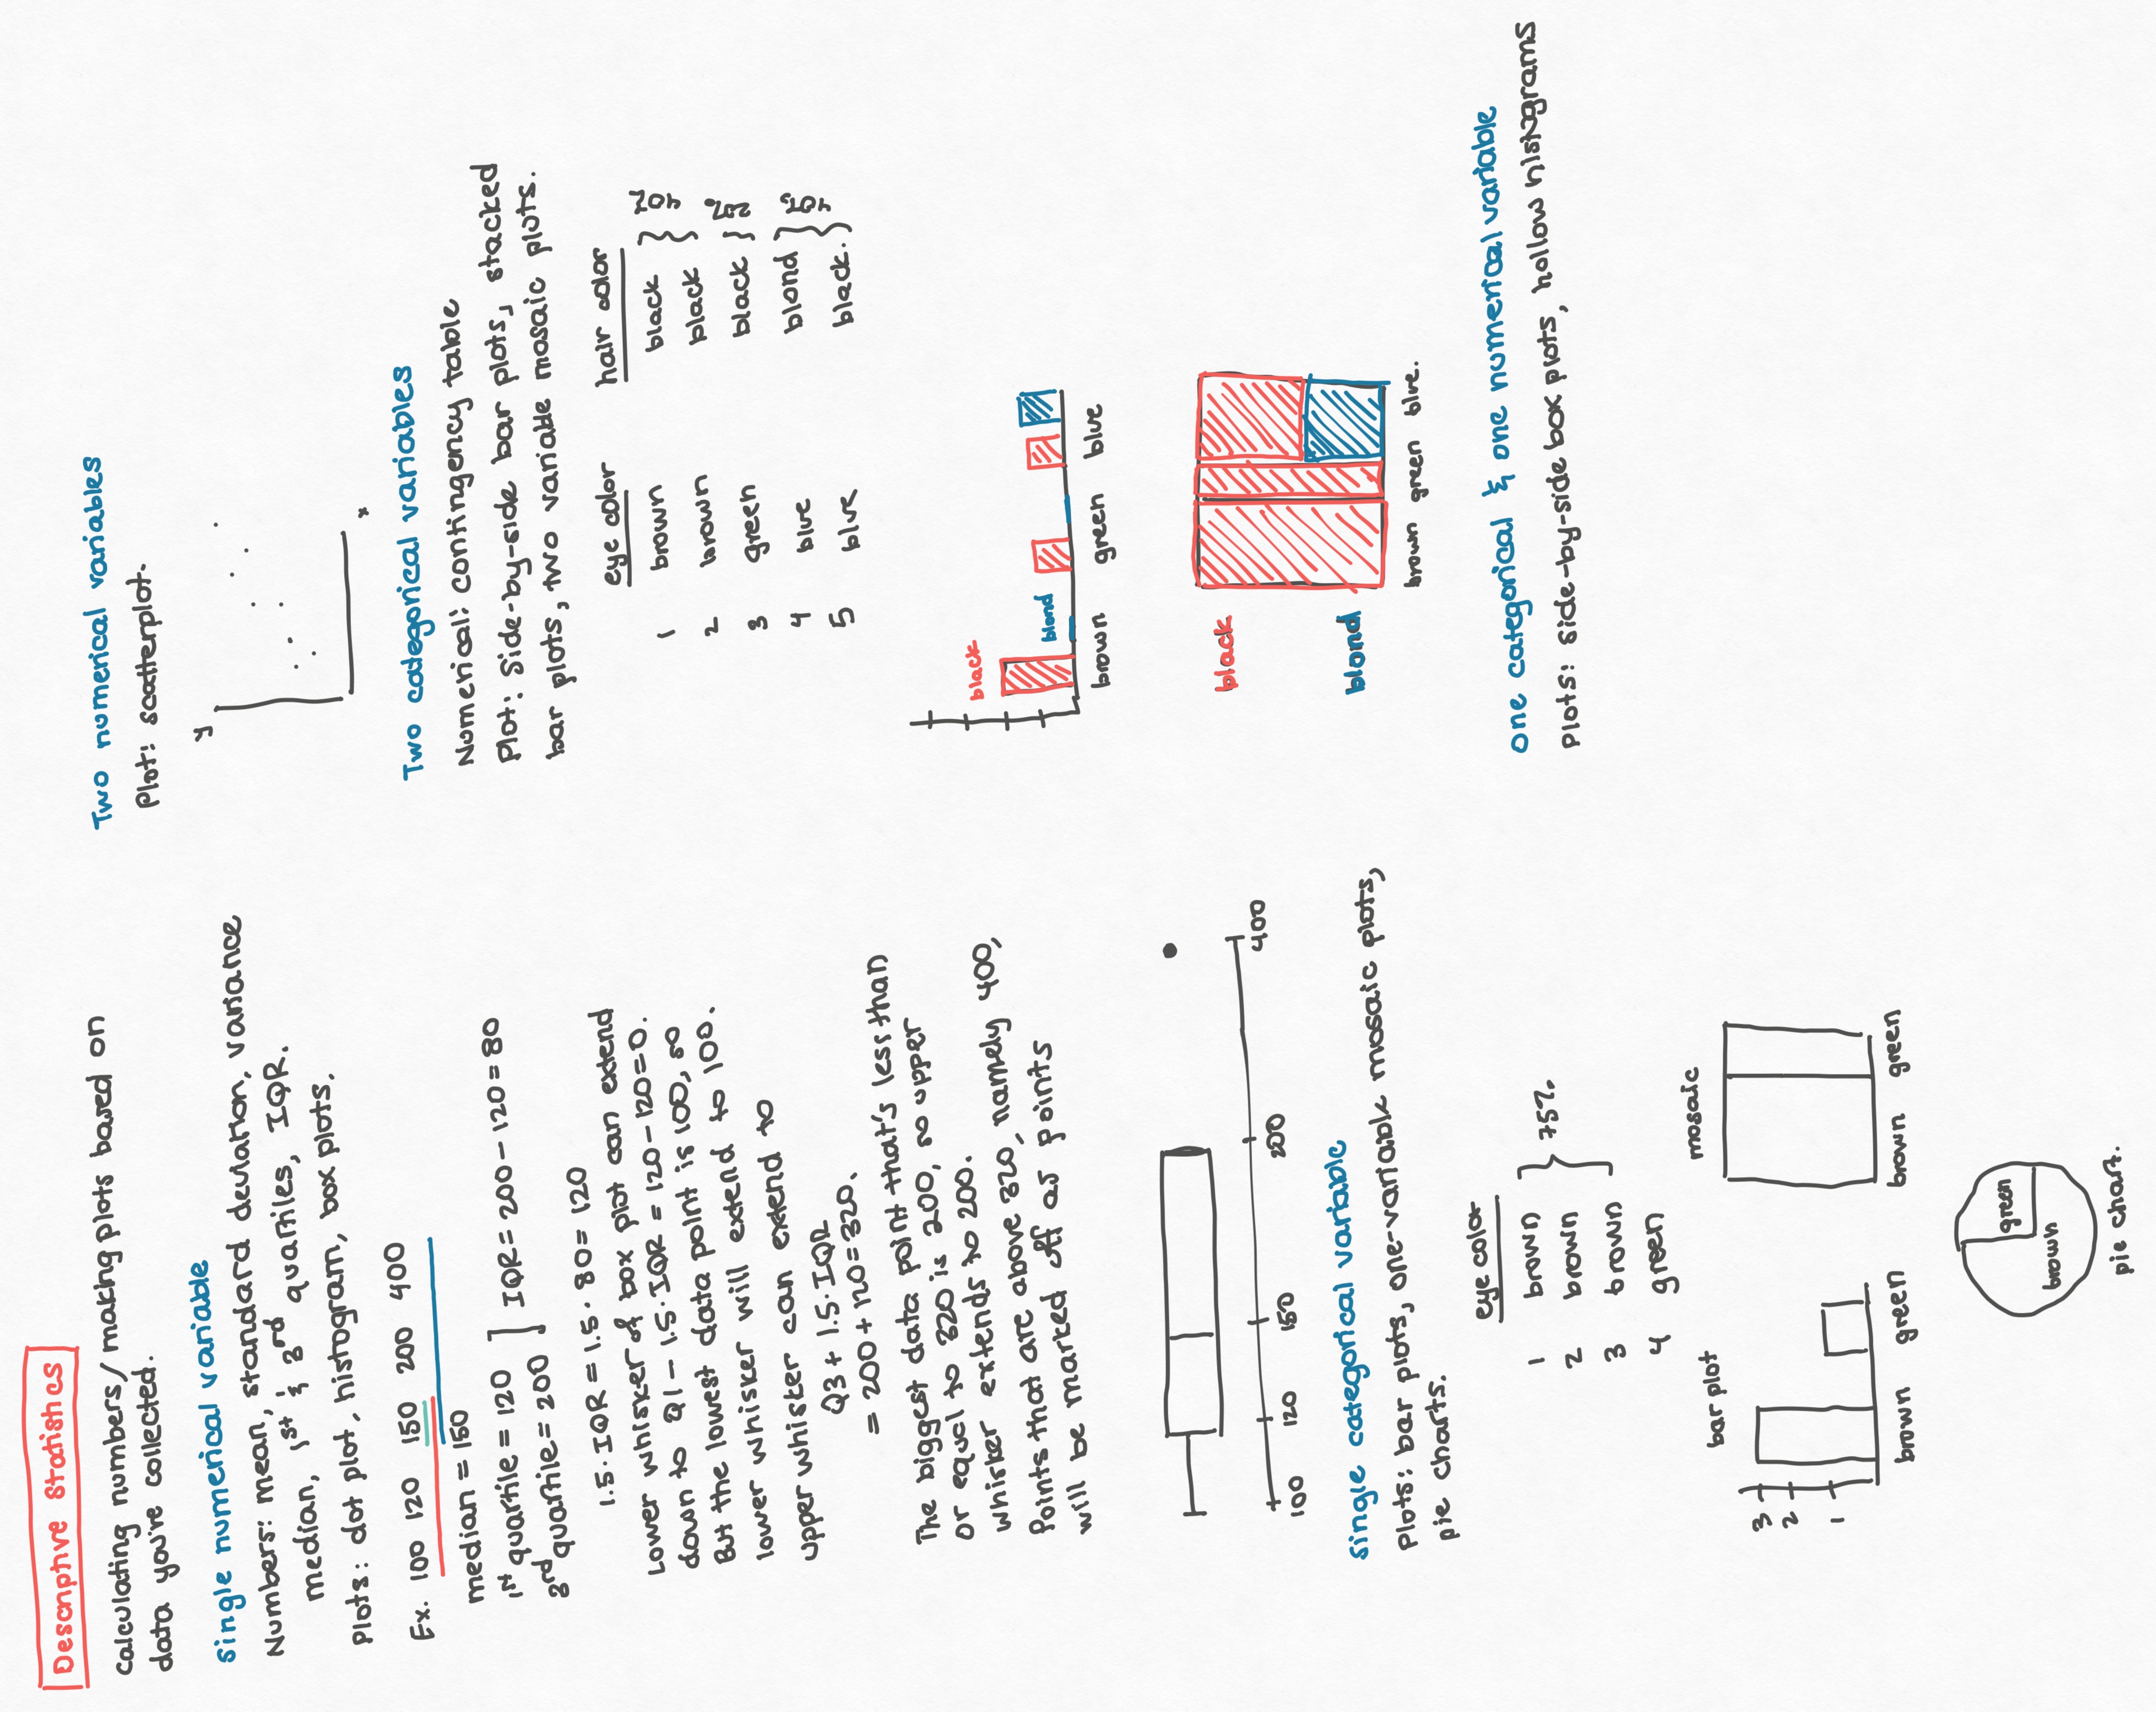 Descriptive Statistics
Calculating numbers/making plots based on
data you're collected.
single numerical variable
Numbers: mean, standard deviation, variance
median, 1st & 3rd quartiles, IQR.
Plots: dot plot, histogram, box plots.
Ex. 100 120 150 200 400
median = 150
1st quartile = 120
3rd quartile = 200 ] IQR = 200 - 120 = 80
1.5·IQR = 1.5·80 = 120
Lower whisker of box plot can extend
down to Q1 - 1.5·IQR = 120 - 120 = 0.
But the lowest data point is 100, so
lower whisker will extend to 100.
upper whisker can extend to
Q3 + 1.5·IQR
= 200 + 120 = 320.
The biggest data point that's less than
or equal to 320 is 200, so upper
whisker extends to 200.
Points that are above 320, namely 400,
will be marked off as points
100 120 150 200 400
single categorical variable
Plots: bar plots, one-variable mosaic plots,
pie charts.
eye color
1 brown
2 brown
3 brown } 75%
4 green
bar plot
3
2
1
brown green
mosaic
brown green
green
brown
pie chart.
Two numerical variables
Plot: scatterplot.
y
x
Two categorical variables
Numerical: contingency table
Plot: Side-by-side bar plots, stacked
bar plots, two variable mosaic plots.
eye color hair color
1 brown black
2 brown black
3 green black
4 blue blond
5 blue black.
black
blond
brown green blue
black
blond
brown green blue.
one categorical & one numerical variable
Plots: side-by-side box plots, hollow histograms